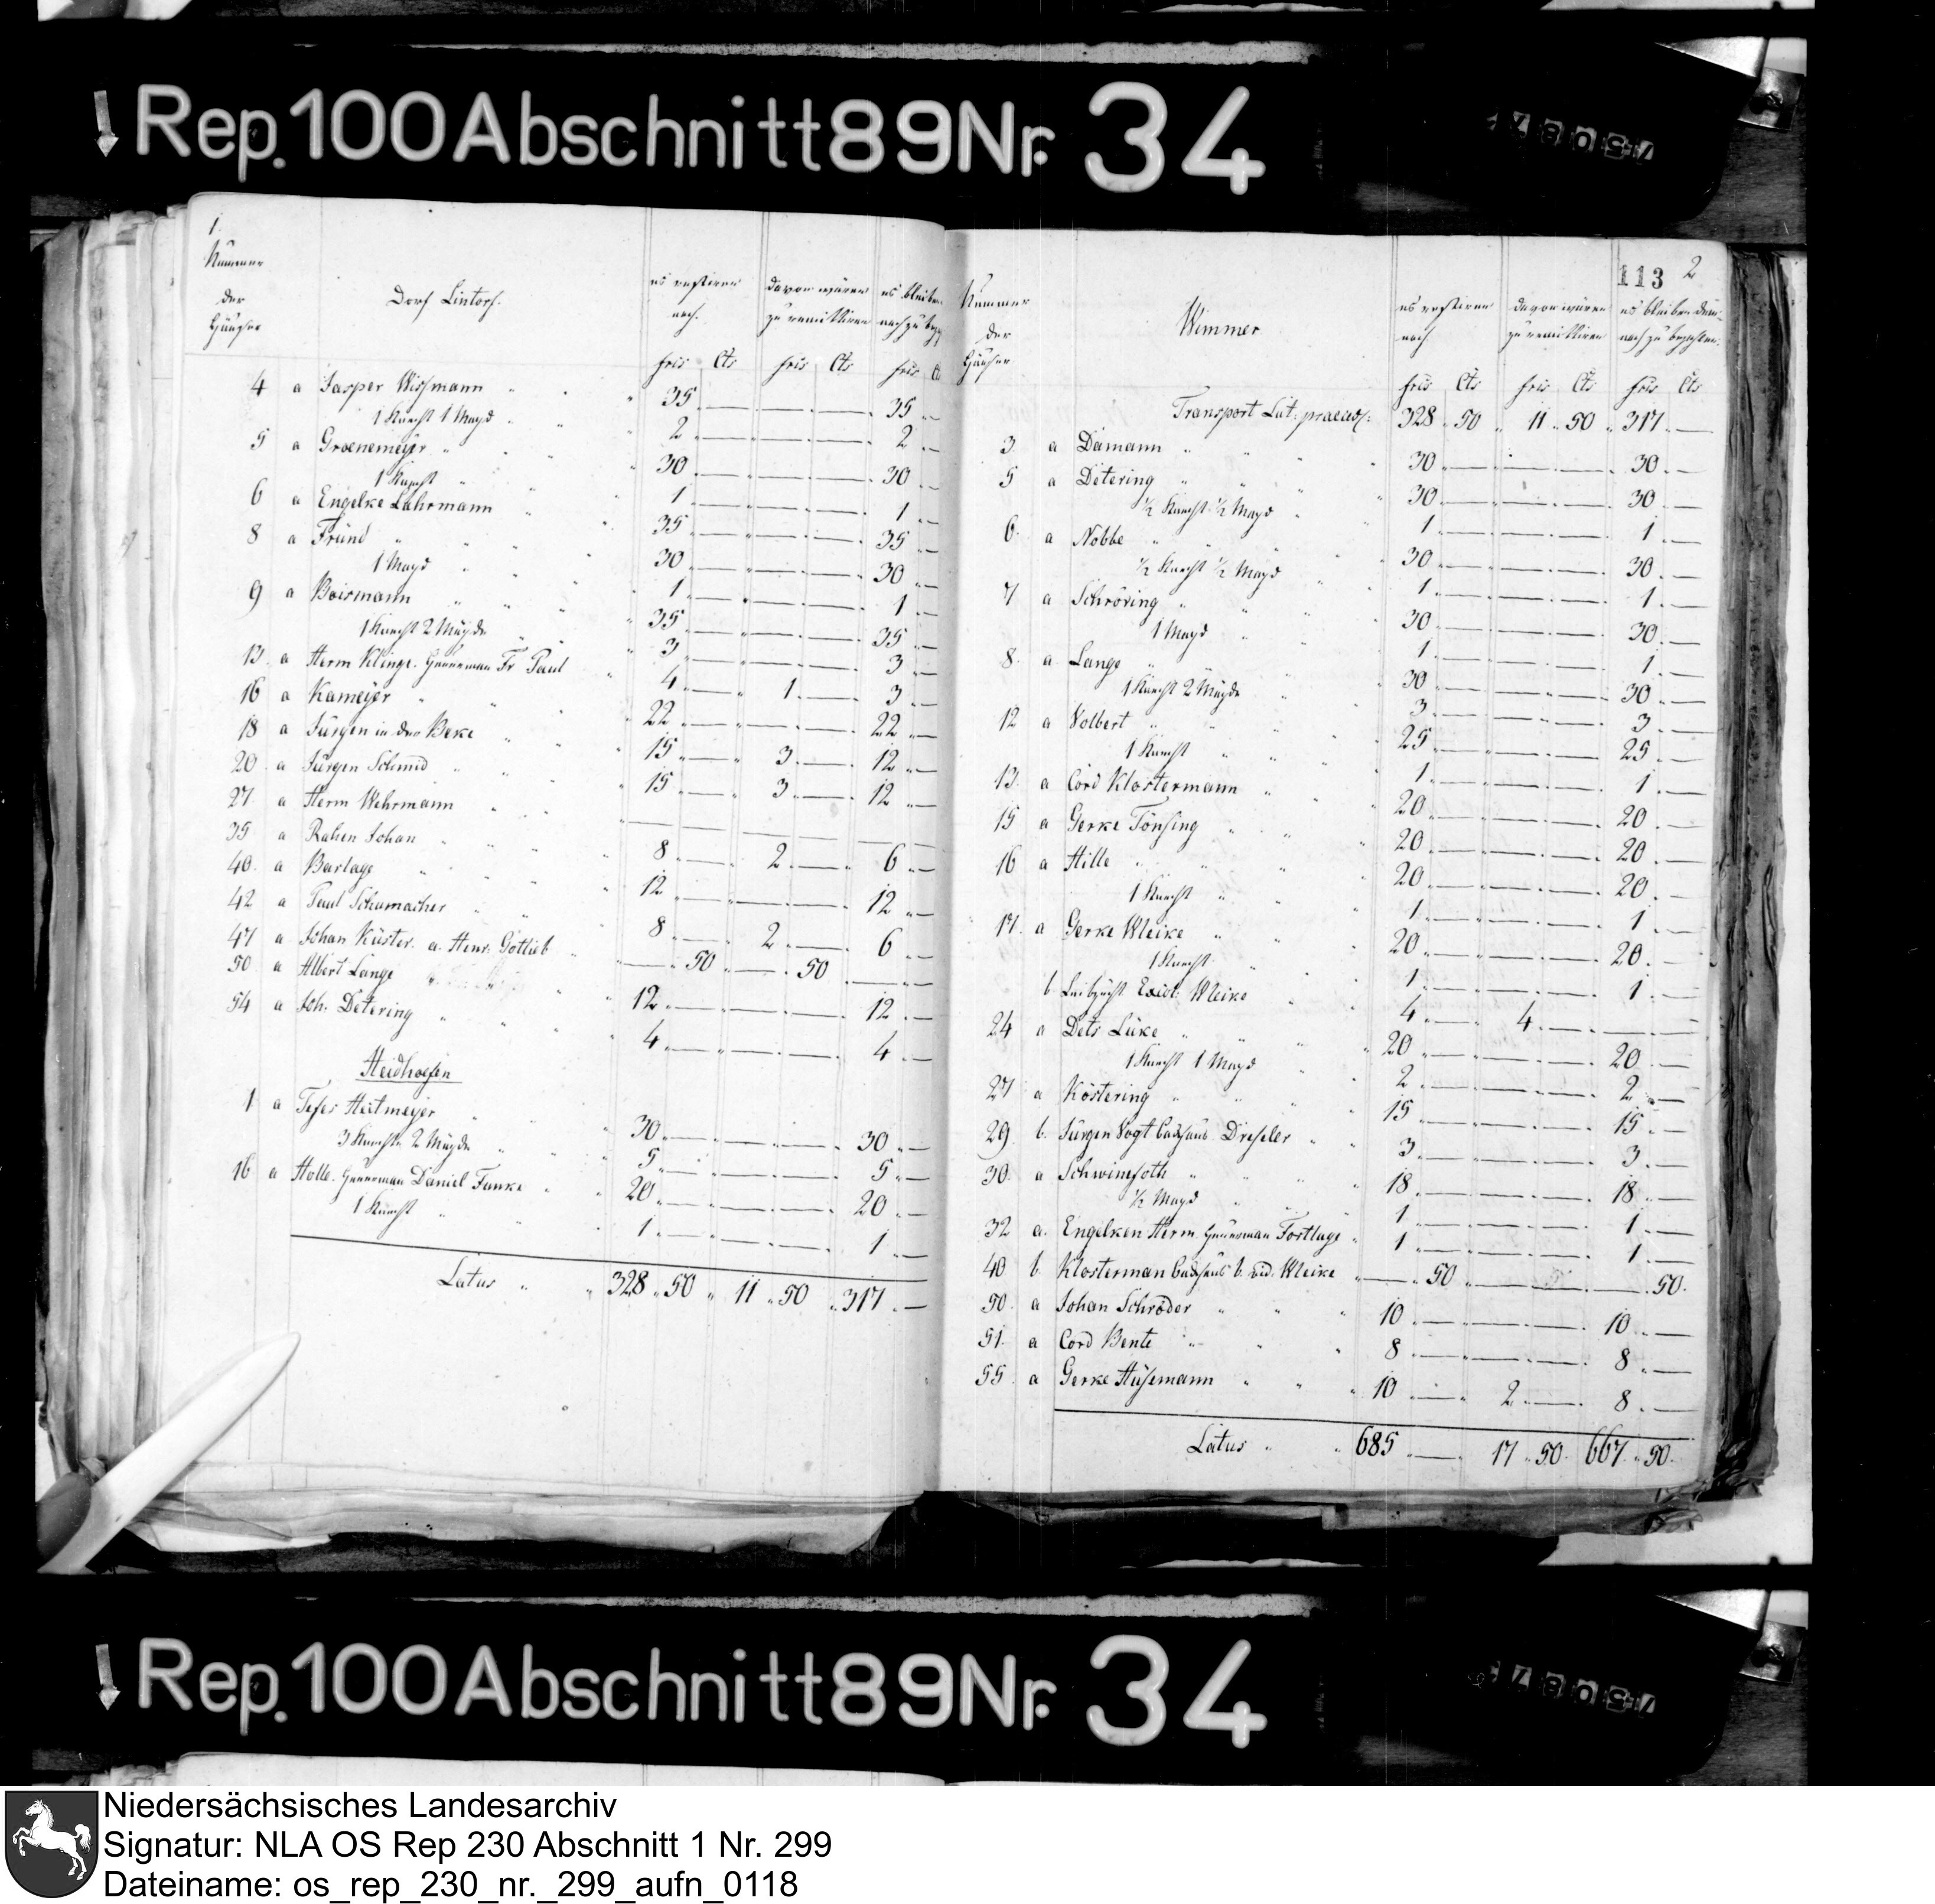 Rep. 100 Abschnitt 89 Nr. 34
1.
Nummer der Häuser
Dorf Lintorf.
es restiren noch.
davon wären zu remittiren
es bleiben
fres Cts fres Cts fres
4 a Jasper Wissmann 35 — — 35
1 Knecht 1 Magd 2 — — 2
5 a Groenemeyer 30 — — 30
1 Knecht 1 — — 1
6 a Engelke Lahrmann 35 — — 35
8 a Fründ 30 — — 30
1 Magd 1 — — 1
9 a Boismann 35 — — 35
1 Knecht 2 Mägde 3 — — 3
13 a Herm Klinge. Heuerman Fr Paul 4 — 1 — 3
16 a Kameyer 22 — — 22
18 a Jürgen in der Beke 15 — 3 — 12
20 a Jürgen Schmid 15 — 3 — 12
27 a Herm Wehrmann — — —
35 a Rahen Johan 8 — 2 — 6
40 a Barlage 12 — — 12
42 a Paul Schumacher 8 — 2 — 6
47 a Johan Küster. a. Henr. Gottlieb — 50 — 50 —
50 a Albert Lange 12 — — 12
54 a Joh. Detering 4 — — 4
Heidhoefen
1 a Heitmeyer 30 — — 30
3 Knechte 2 Mägde 5 — — 5
16 a Holle. Heuerman Daniel Funke 20 — — 20
1 Knecht 1 — — 1
Latus 328 50 11 50 317 —
113 2
Nummer der Häuser
Wimmer
es restiren noch
davon wären zu remittiren
es bleiben noch zu bezahlen.
fres Cts fres Cts fres Cts
Transport Lat: praeced: 328 50 11 50 317 —
3 a Damann 30 — — 30 —
5 a Detering 30 — — 30 —
½ Knecht ½ Magd 1 — — 1 —
6 a Nobbe 30 — — 30 —
½ Knecht ½ Magd 1 — — 1 —
7 a Schröring 30 — — 30 —
1 Magd 1 — — 1 —
8 a Lange 30 — — 30 —
1 Knecht 2 Mägde 3 — — 3 —
12 a Volbert 25 — — 25 —
1 Knecht 1 — — 1 —
13 a Cord Klostermann 20 — — 20 —
15 a Gerke Tönsing 20 — — 20 —
16 a Hille 20 — — 20 —
1 Knecht 1 — — 1 —
17 a Gerke Wleike 20 — — 20 —
1 Knecht 1 — — 1 —
b Leibzucht Wleike 4 — 4 — —
24 a Dets Lüke 20 — — 20 —
1 Knecht 1 Magd 2 — — 2 —
27 a Köstering 15 — — 15 —
29 b. Jürgen Vogt backhaus Dreseler 3 — — 3 —
30 a Schwimfoth 18 — — 18 —
½ Magd 1 — — 1 —
32 a. Engelken Herm. Heuerman Fortlage 1 — — 1 —
40 b. Klosterman backhaus b. Wleike — 50 — — 50
50 a Johan Schröder 10 — — 10 —
51 a Cord Bente 8 — — 8 —
55 a Gerke Hüsemann 10 — 2 — 8 —
Latus 685 — 17 50 667 50
Rep. 100 Abschnitt 89 Nr. 34
Niedersächsisches Landesarchiv
Signatur: NLA OS Rep 230 Abschnitt 1 Nr. 299
Dateiname: os_rep_230_nr._299_aufn_0118